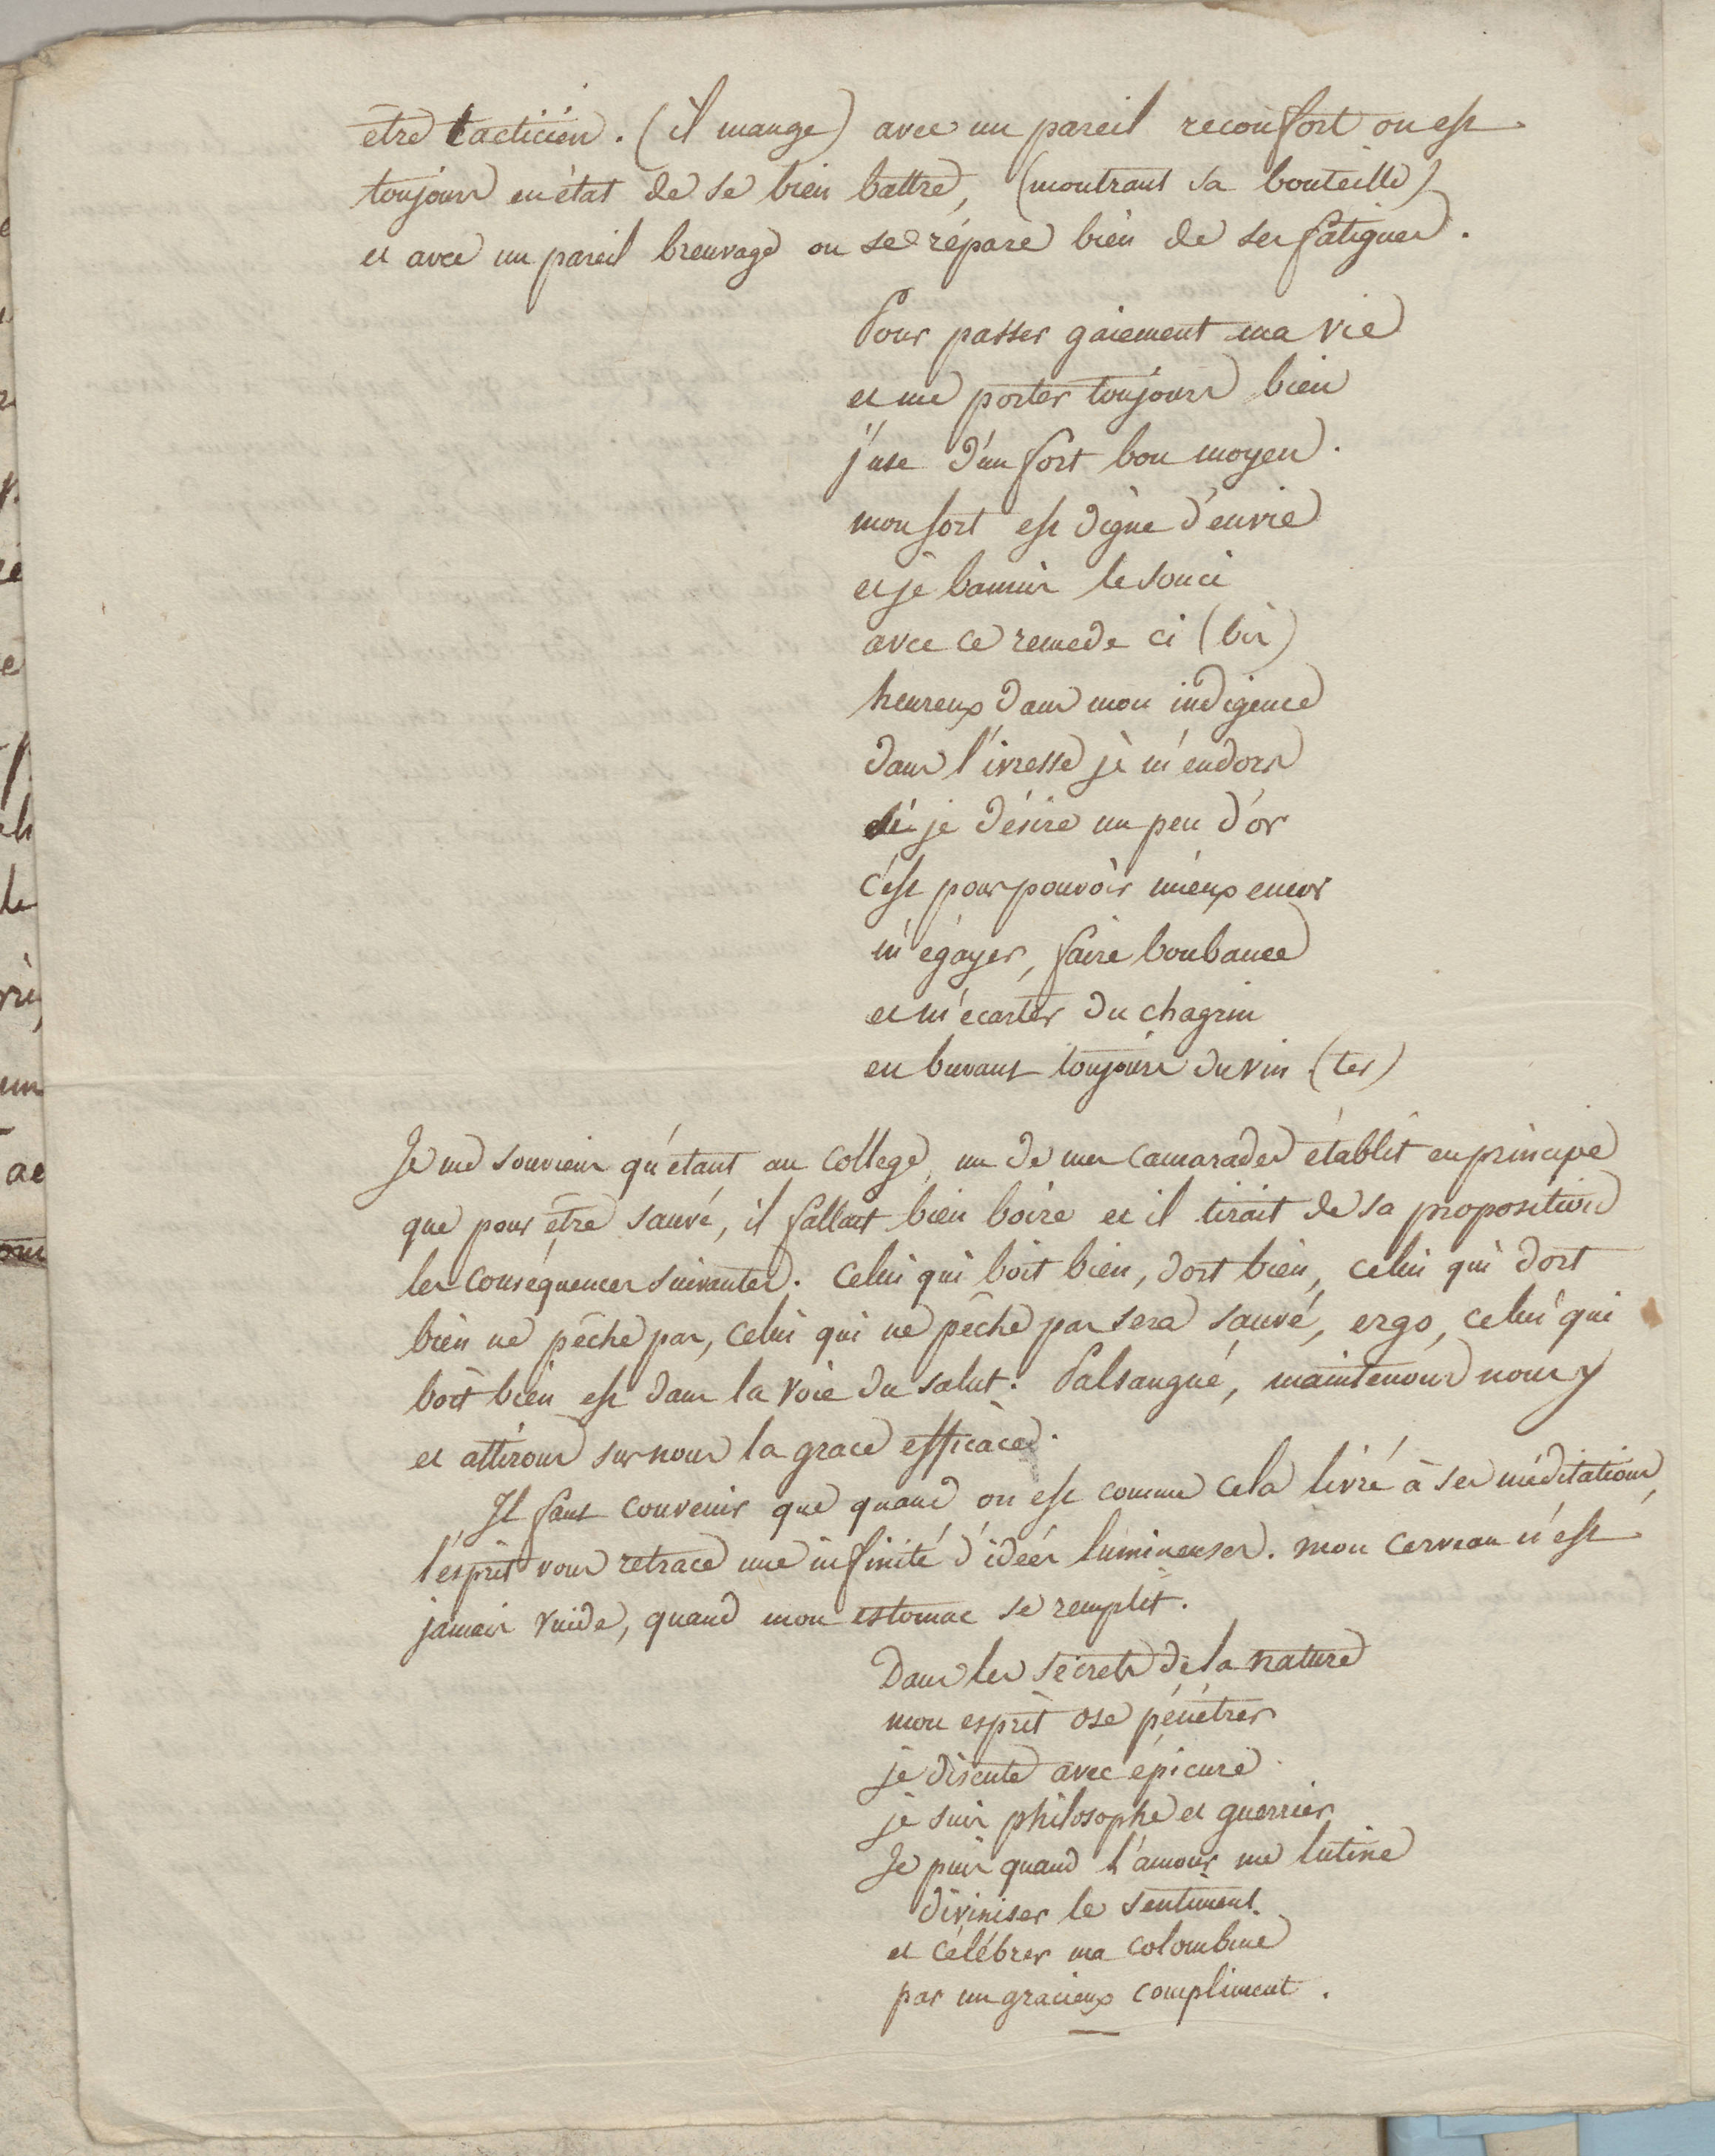 être tacticien. (il mange) avec un pareil reconfort on est
toujours en état de se bien battre, (montrant sa bouteille)
et avec un pareil breuvage on se répare bien de ses fatigues.
Pour passer gaiement ma vie
et me porter toujours bien
j'use d'un fort bon moyen.
mon sort est digne d'envie
et je bannis le souci
avec ce remede ci (bis)
heureux dans mon indigence
dans l'ivresse je m'endors
si je désire un peu d'or
c'est pour pouvoir mieux encor
m'égayer, faire bonbance
et m'ecarter du chagrin
en buvant toujours du vin (ter)
Je me souviens qu'étant au college, un de mes camarades établit en principe
que pour être sauvé, il fallait bien boire et il tirait de sa proposition
les conséquences suivantes. Celui qui boit bien, dort bien, celui qui dort
bien ne pêche pas, celui qui ne pêche pas sera sauvé, ergo, celui qui
boit bien est dans la voie du salut. Palsangué, maintenons nous y
et attirons sur nous la grace efficace.
Il faut convenir que quand on est comme cela livré à ses méditations,
l'esprit vous retrace une infinité d'idées lumineuses. mon cerveau n'est
jamais vuide, quand mon estomac se remplit.
Dans les secrets de la nature
mon esprit ose pénétrer
je discute avec épicure
je suis philosophe et guerrier
Je puis quand l'amour me lutine
diviniser le sentiment
et célébrer ma colombine
par un gracieux compliment.